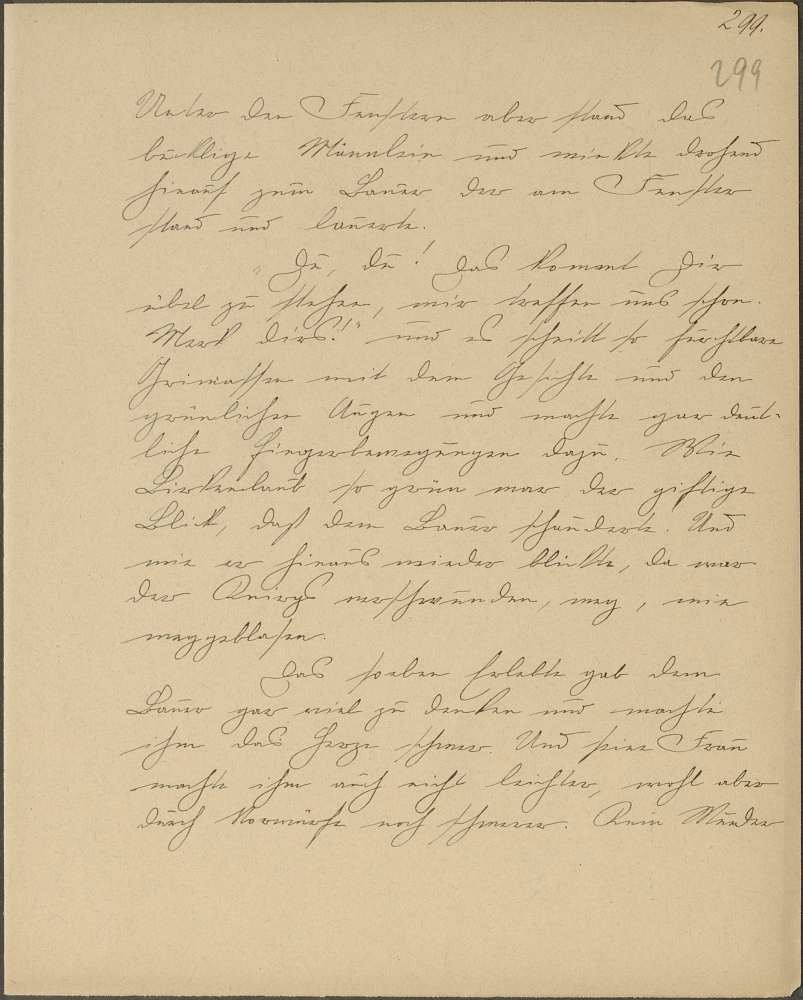 299.
299
Unter den Fenstern aber stand das
bucklige Männlein und winkte drohend
hinauf zum Bauer der am Fenster
stand und lauerte.
„Du, du! Das kommt Dir
übel zu stehen, wir treffen uns schon.
Merk dirs!“ und es schnitt so furchtbare
Grimassen mit dem Gesichte und den
grünlichen Augen und machte gar deut-
liche Fingerbewegungen dazu. Wie
Birkenlaub so grün war der giftige
Blick, daß dem Bauer schauderte. Und
wie er hinaus wieder blickte, da war
der Knirps verschwunden, weg, wie
weggeblasen.
Das soeben Erlebte gab dem
Bauer gar viel zu denken und machte
ihm das Herze schwer. Und seine Frau
machte ihm auch nicht leichter, wohl aber
durch Vorwürfe noch schwerer. Kein Wunder